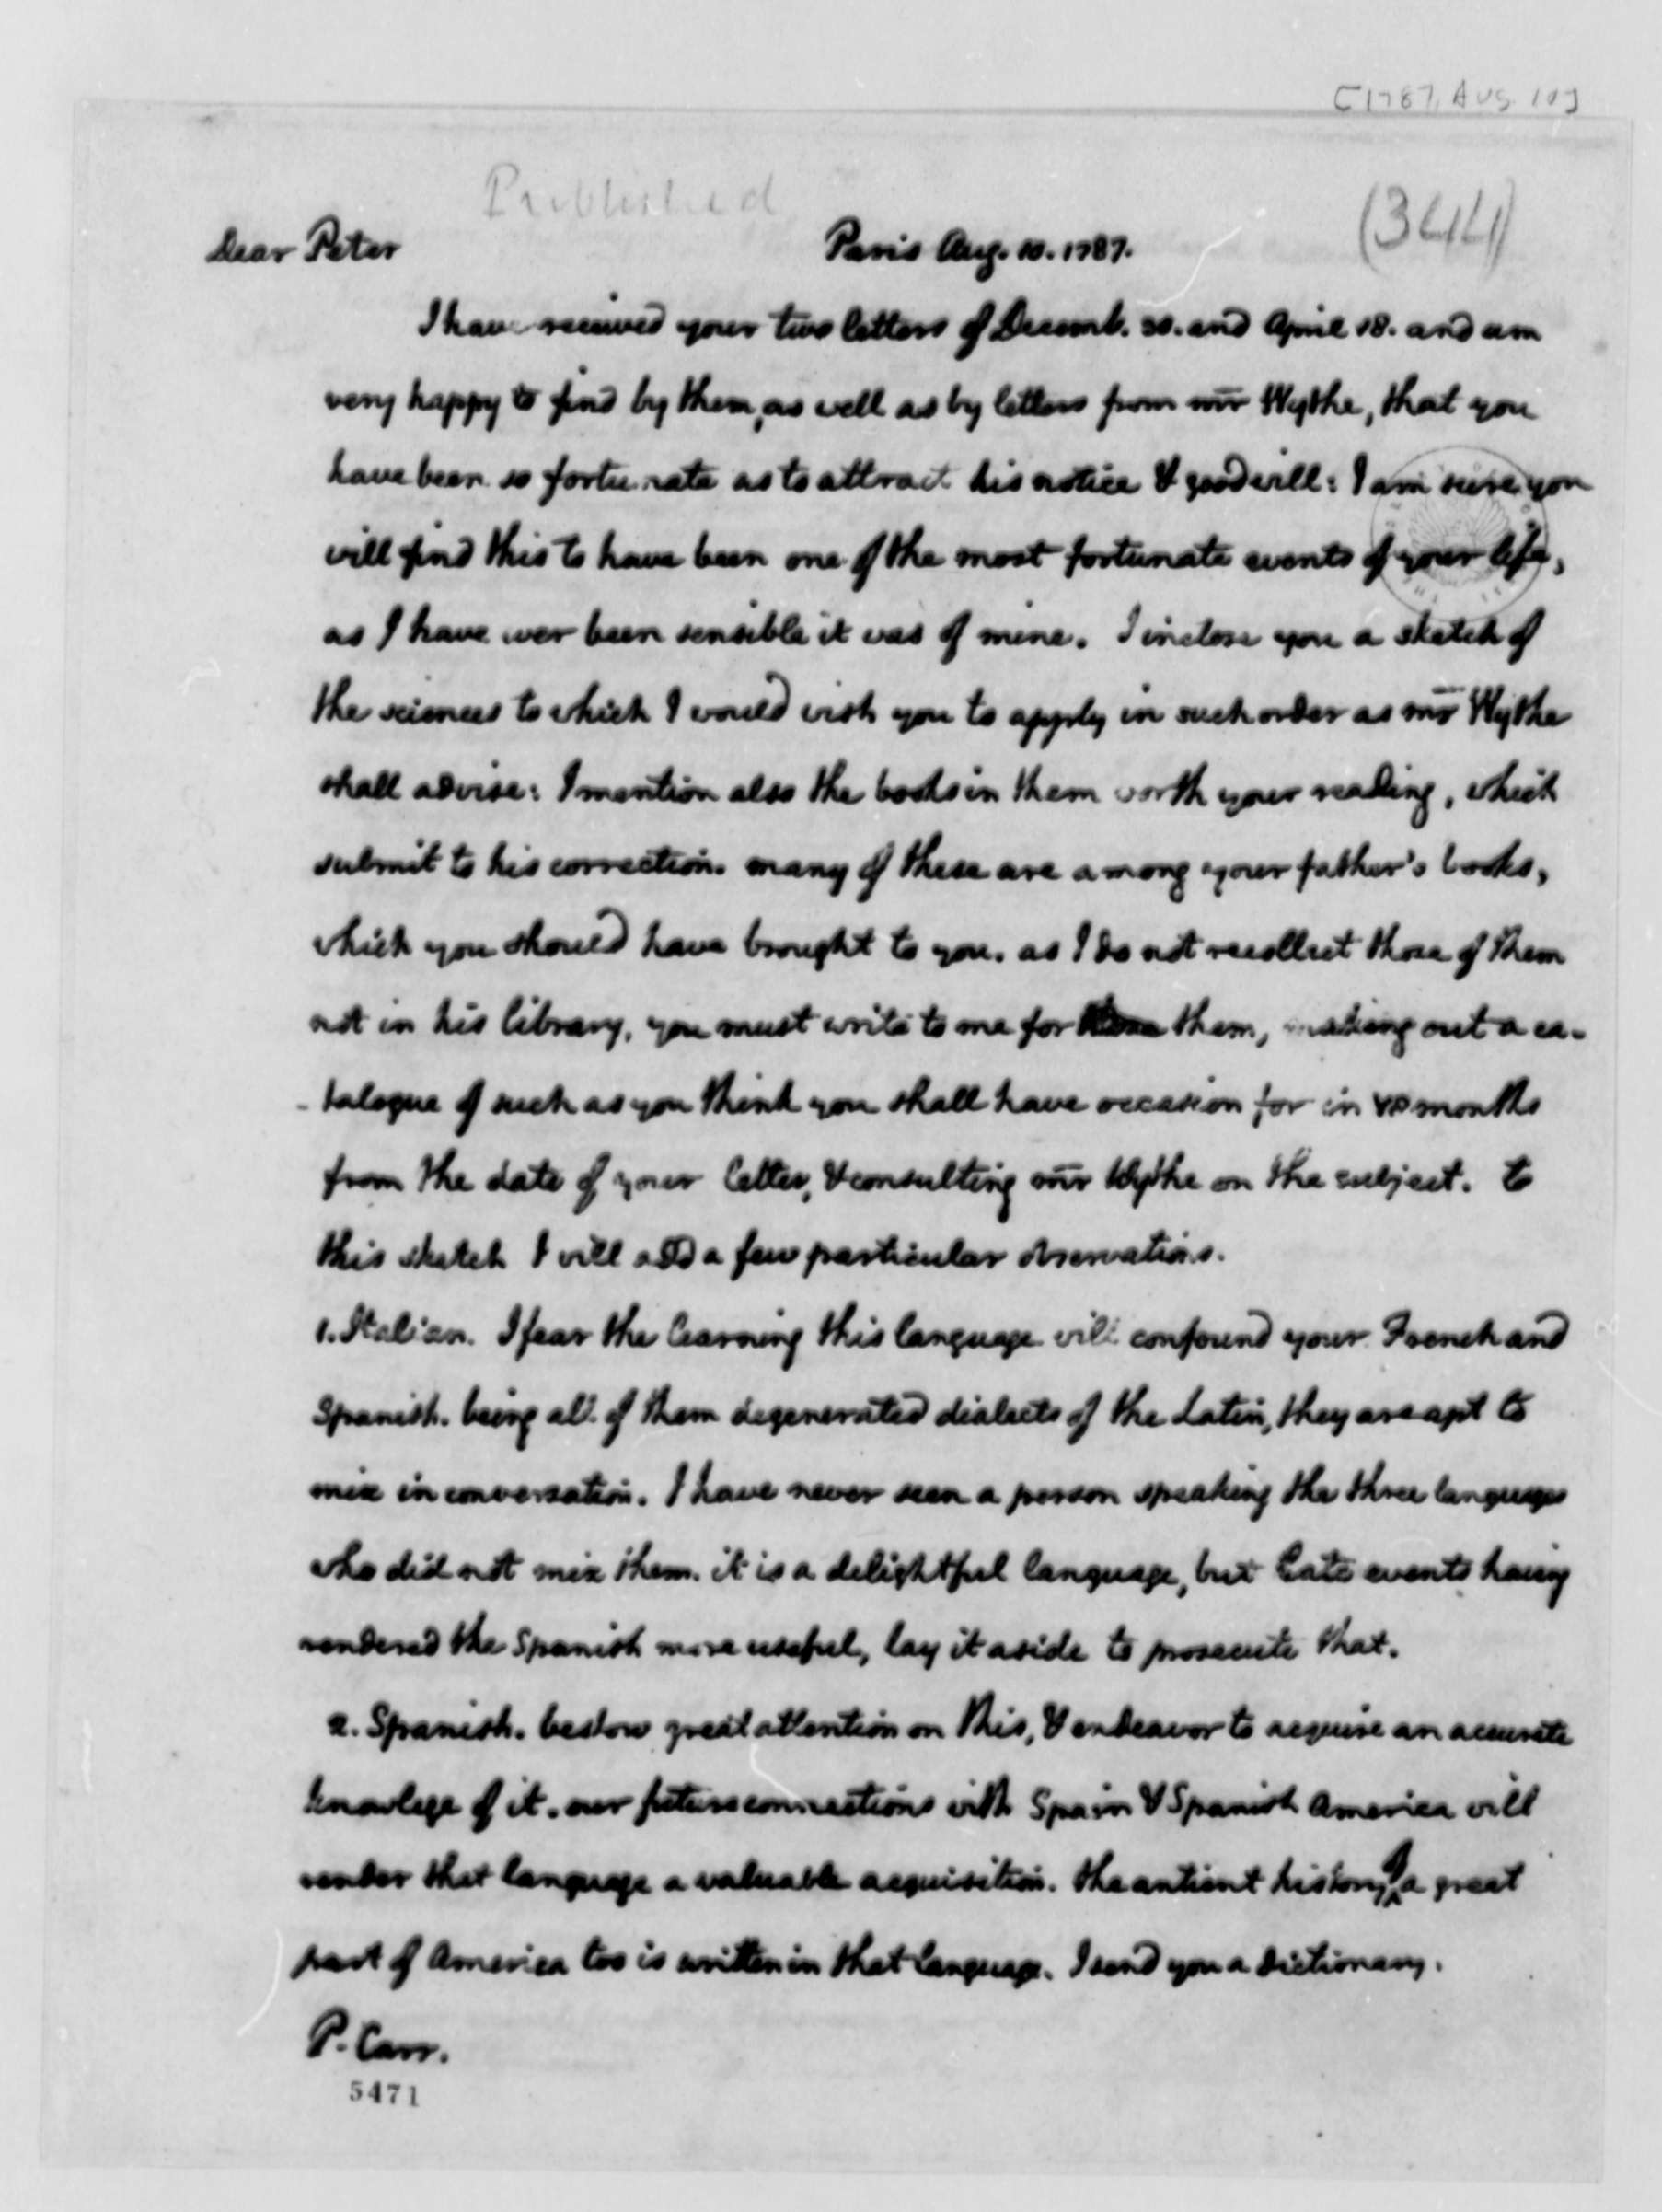 [1787, Aug. 10]
Published
(344)
Dear Peter Paris Aug. 10. 1787.
I have received your two letters of Decemb. 30. and April 18. and am
very happy to find by them, as well as by letters from mr Wythe, that you
have been so fortunate as to attract his notice & goodwill: I am sure you
will find this to have been one of the most fortunate events of your life,
as I have ever been sensible it was of mine. I inclose you a sketch of
the sciences to which I would wish you to apply in such order as mr Wythe
shall advise: I mention also the books in them worth your reading, which
submit to his correction. many of these are among your father's books,
which you should have brought to you. as I do not recollect those of them
not in his library, you must write to me for them, making out a ca-
-talogue of such as you think you shall have occasion for in 18 months
from the date of your letter, & consulting mr Wythe on the subject. to
this sketch I will add a few particular observations.
1. Italian. I fear the learning this language will confound your French and
Spanish. being all of them degenerated dialects of the Latin, they are apt to
mix in conversation. I have never seen a person speaking the three languages
who did not mix them. it is a delightful language, but late events having
rendered the Spanish more useful, lay it aside to prosecute that.
2. Spanish. bestow great attention on this, & endeavor to acquire an accurate
knowlege of it. our future connections with Spain & Spanish America will
render that language a valuable acquisition. the antient history of a great
part of America too is written in that language. I send you a dictionary.
P. Carr.
5471